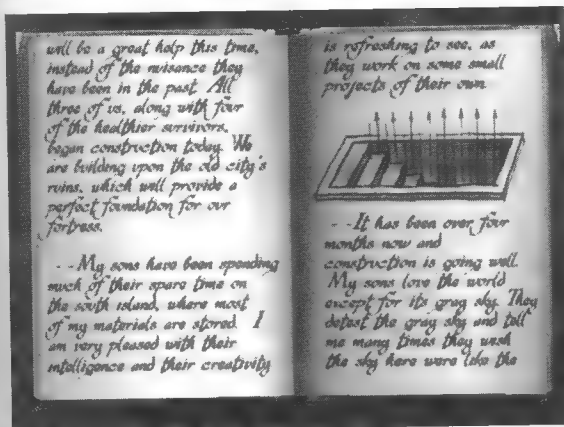 will be a great help this time,
instead of the nuisance they
have been in the past. All
three of us, along with four
of the healthier survivors,
began construction today. We
are building upon the old city's
ruins, which will provide a
perfect foundation for our
fortress.
--My sons have been spending
much of their spare time on
the south island, where most
of my materials are stored. I
am very pleased with their
intelligence and their creativity
is refreshing to see, as
they work on some small
projects of their own.
--It has been over four
months now and
construction is going well.
My sons love the world
except for its gray sky. They
detest the gray sky and tell
me many times they wish
the sky here were like the